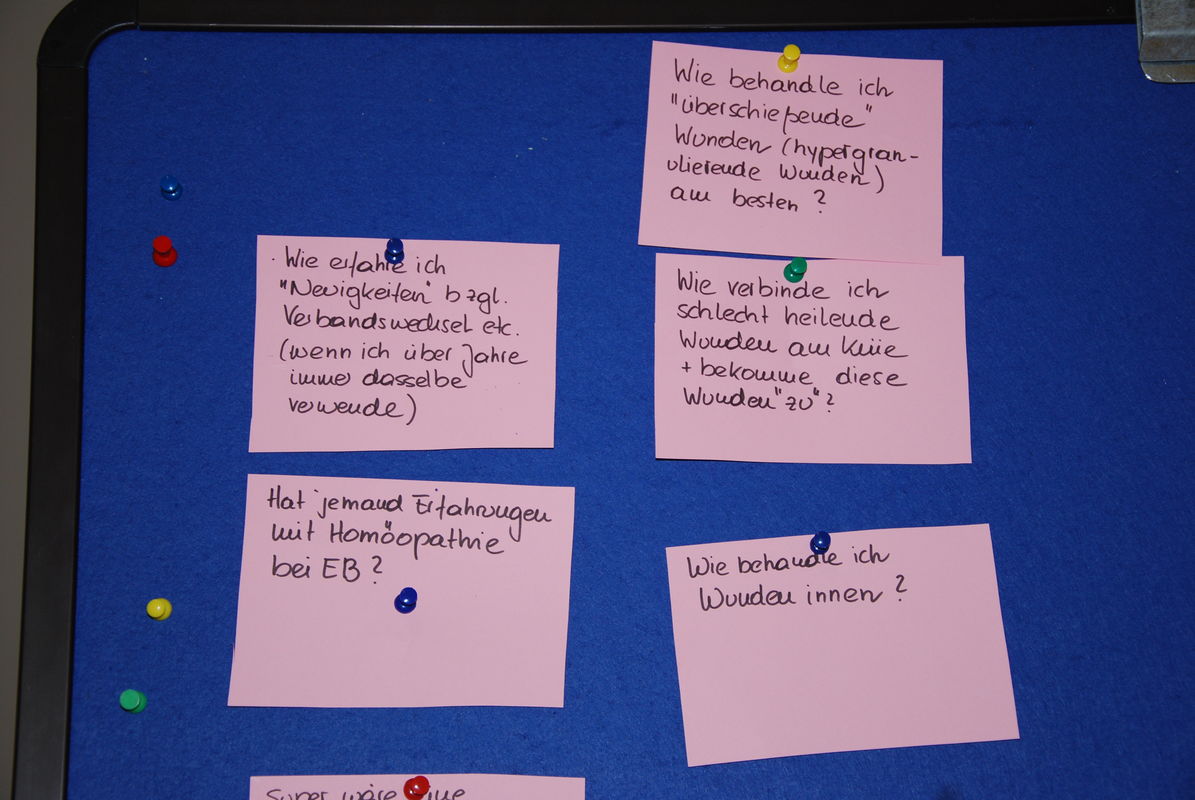 Wie behandle ich
"überschießende"
Wunden (hypergran-
ulierende Wunden)
am besten?
· Wie erfahre ich
"Neuigkeiten" bzgl.
Verbandswechsel etc.
(wenn ich über Jahre
immer dasselbe
verwende)
Wie verbinde ich
schlecht heilende
Wunden am Knie
+ bekomme diese
Wunden "zu"?
Hat jemand Erfahrungen
mit Homöopathie
bei EB?
Wie behandle ich
Wunden innen?
Super wäre